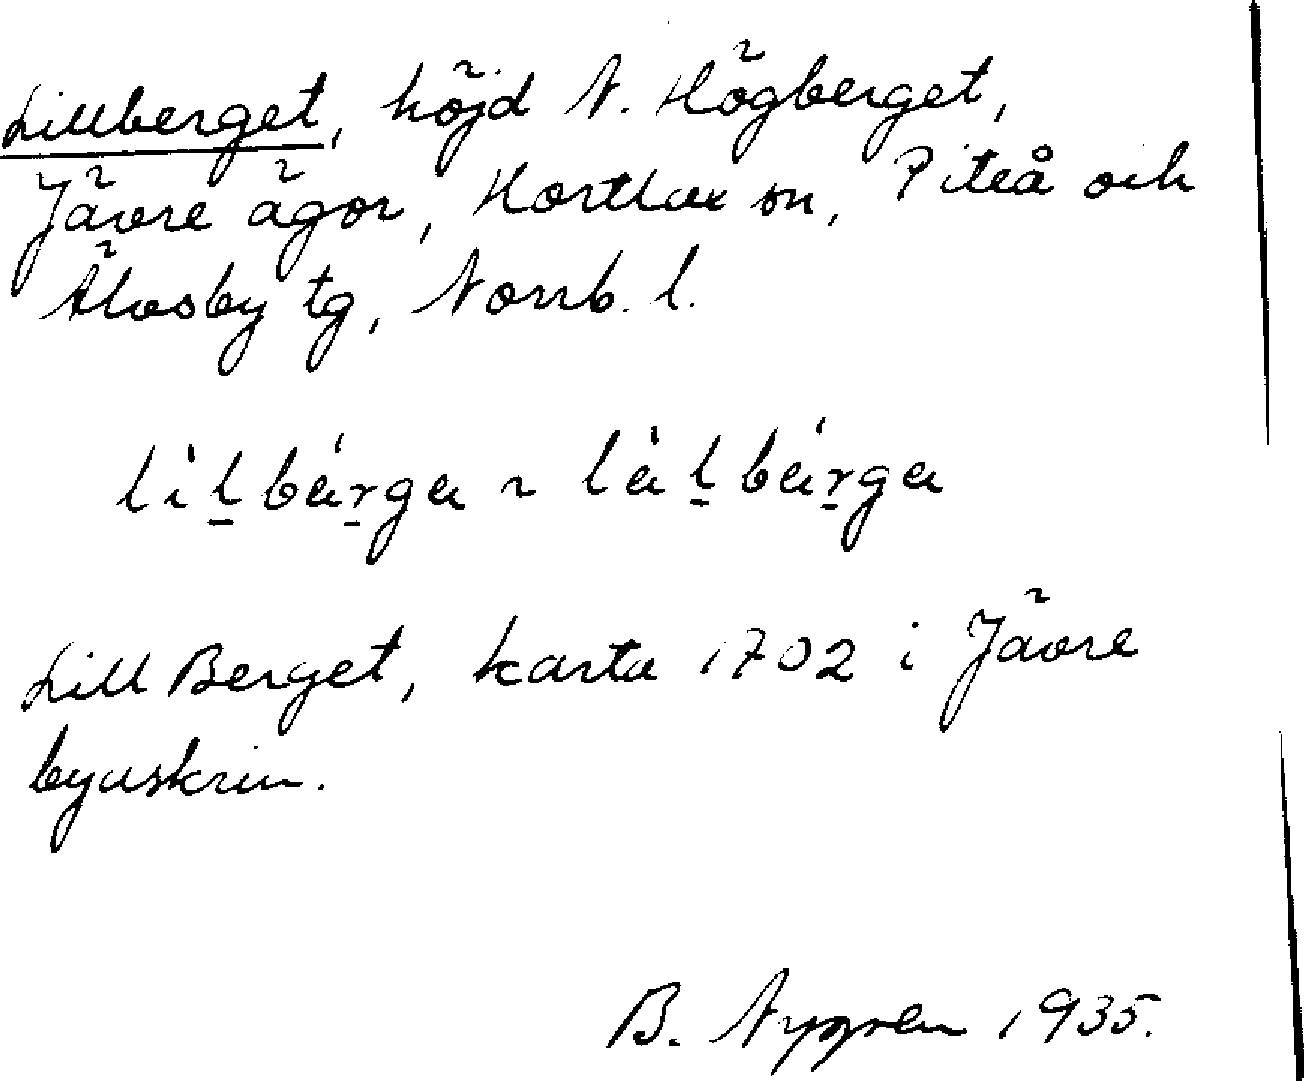 Lillberget, höjd N. Högberget,
Jävre ägor, Hortlax sn, Piteå och
Älvsby tg, Norrb. l.
lìl̠bárga ~ làl̠bárga
Lill Berget, karta 1702 i Jävre
byaskrin.
B. Nygren 1935.